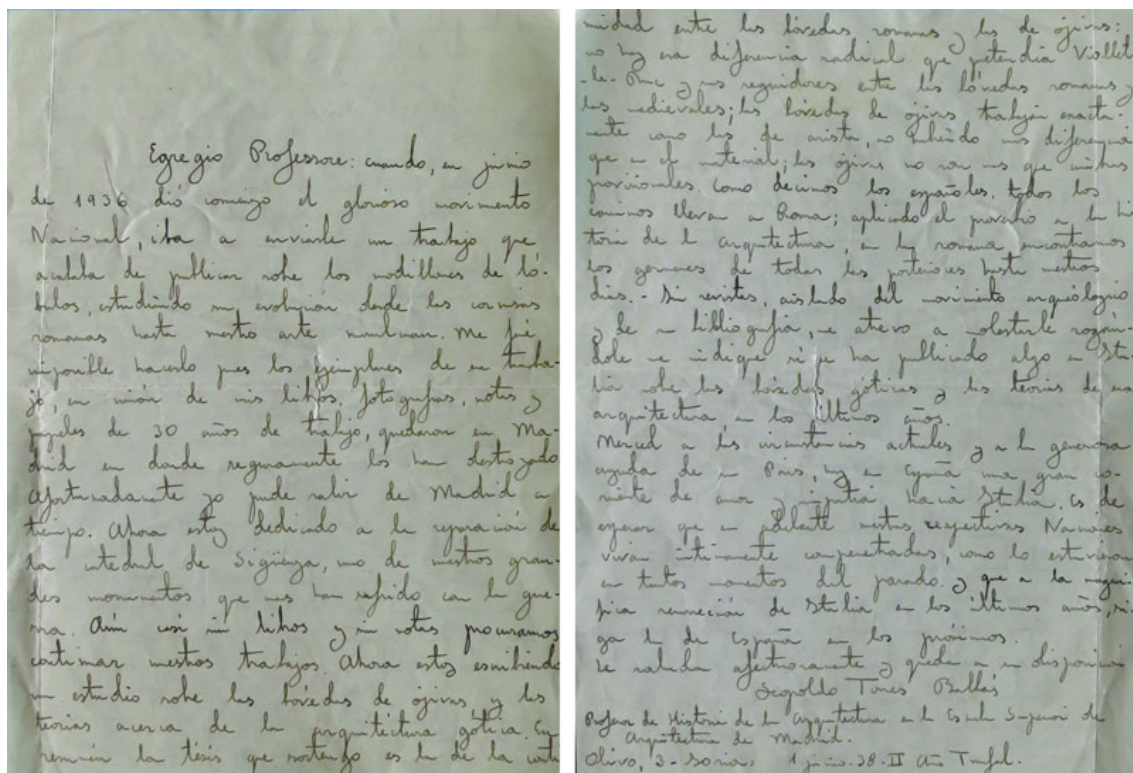 Egregio Professore: cuando, en junio
de 1936 dió comienzo el glorioso movimento
Nacional, iba a enviarle un trabajo que
acababa de publicar sobre los modillones de ló-
bulos, estudiando su evolución desde las cornisas
romanas hasta nuestro arte musulman. Me fué
imposible hacerlo pues los ejemplares de ese traba-
jo, en unión de mis libros, fotografias, notas y
papeles de 30 años de trabajo, quedaron en Ma-
drid en donde seguramente los han destrozado
Afortunadamente yo pude salir de Madrid a
tiempo. Ahora estoy dedicado a la reparación de
la catedral de Sigüenza, uno de nuestros gran-
des monumentos que mas han sufrido con la gue-
rra. Aún casi sin libros y sin notas procuramos
continuar nuestros trabajos. Ahora estoy escribiendo
un estudio sobre las bóvedas de ojivas y las
teorias acerca de la arquitéctura gótica. En
resumen la tésis que sostengo es la de la conti
nuidad entre las bóvedas romanas y las de ojivas:
no hay esa diferencia radical que pretendia Viollet
-le-Duc y sus seguidores entre las bóvedas romanas y
las medievales; las bóvedas de ojivas trabajan exacta-
mente como las de arista, no habiendo mas diferencia
que en el material; las ojivas no son mas que cimbras
provisionales. Como decimos los españoles, todos los
caminos llevan a Roma; aplicando el proverbio a la his
toria de la arquitectura, en la romana encontramos
los germenes de todas las posteriores hasta nuestros
dias.- Sin revistas, aislado del movimiento arqueológico
y de su bibliografia, me atrevo a molestarle rogán-
dole me indique si se ha publicado algo en Ita-
lia sobre las bóvedas góticas y las teorias de esa
arquitectura en los últimos años.
Merced a las circunstancias actuales y a la generosa
ayuda de su Pais, hay en España una gran co-
rriente de amor y simpatia hacia Italia. Es de
esperar que en adelante nuestras respectivas Naciones
vivan intimamente compenetradas, como lo estuvieron
en tantos momentos del pasado. y que a la magni-
fica resurrección de Italia en los últimos años, si-
ga la de España en los próximos.
Le saluda afectuosamente y queda a su disposición
Leopoldo Torres Balbás
Profesor de Historia de la Arquitectura en la Escuela Superior de
Arquitectura de Madrid.
Olivo, 3-Soria. 1 junio-38-II Año Triufal.